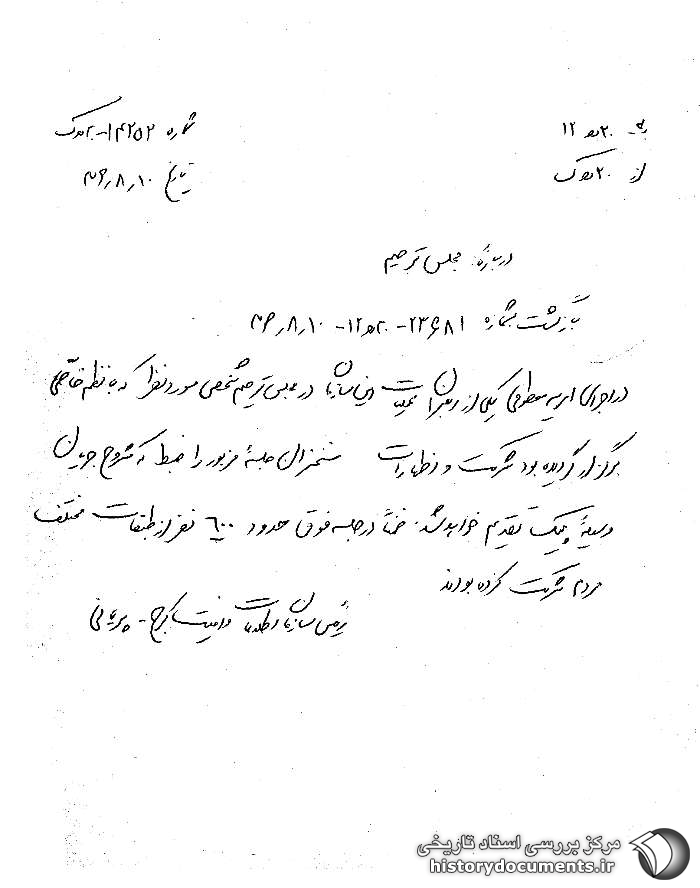 به ۲۰ ه ۱۲
شماره ۱۴۲۵۲-۲۰ ه ک
از ۲۰ ه ک
تاریخ ۴۶٫۸٫۱۰
درباره: مجلس ترحیم
بازگشت بشماره ۲۳۶۸۱-۲۰ ه ۱۲-۴۶٫۸٫۱۰
در اجرای اوامریه معطوفی یکی از رهبران عملیات این سازمان در مجلس ترحیم شخص مورد نظر که با نظم خاصی
برگزار گردیده بود شرکت و اظهارات سخنران جلسه مزبور را ضبط که مشروح جریان
وسیله پیک تقدیم خواهد شد. ضمناً در جلسه فوق حدود ۶۰۰ نفر از طبقات مختلف
مردم شرکت کرده بودند
رئیس سازمان اطلاعات و امنیت کرج -
مرکز بررسی اسناد تاریخی
historydocuments.ir